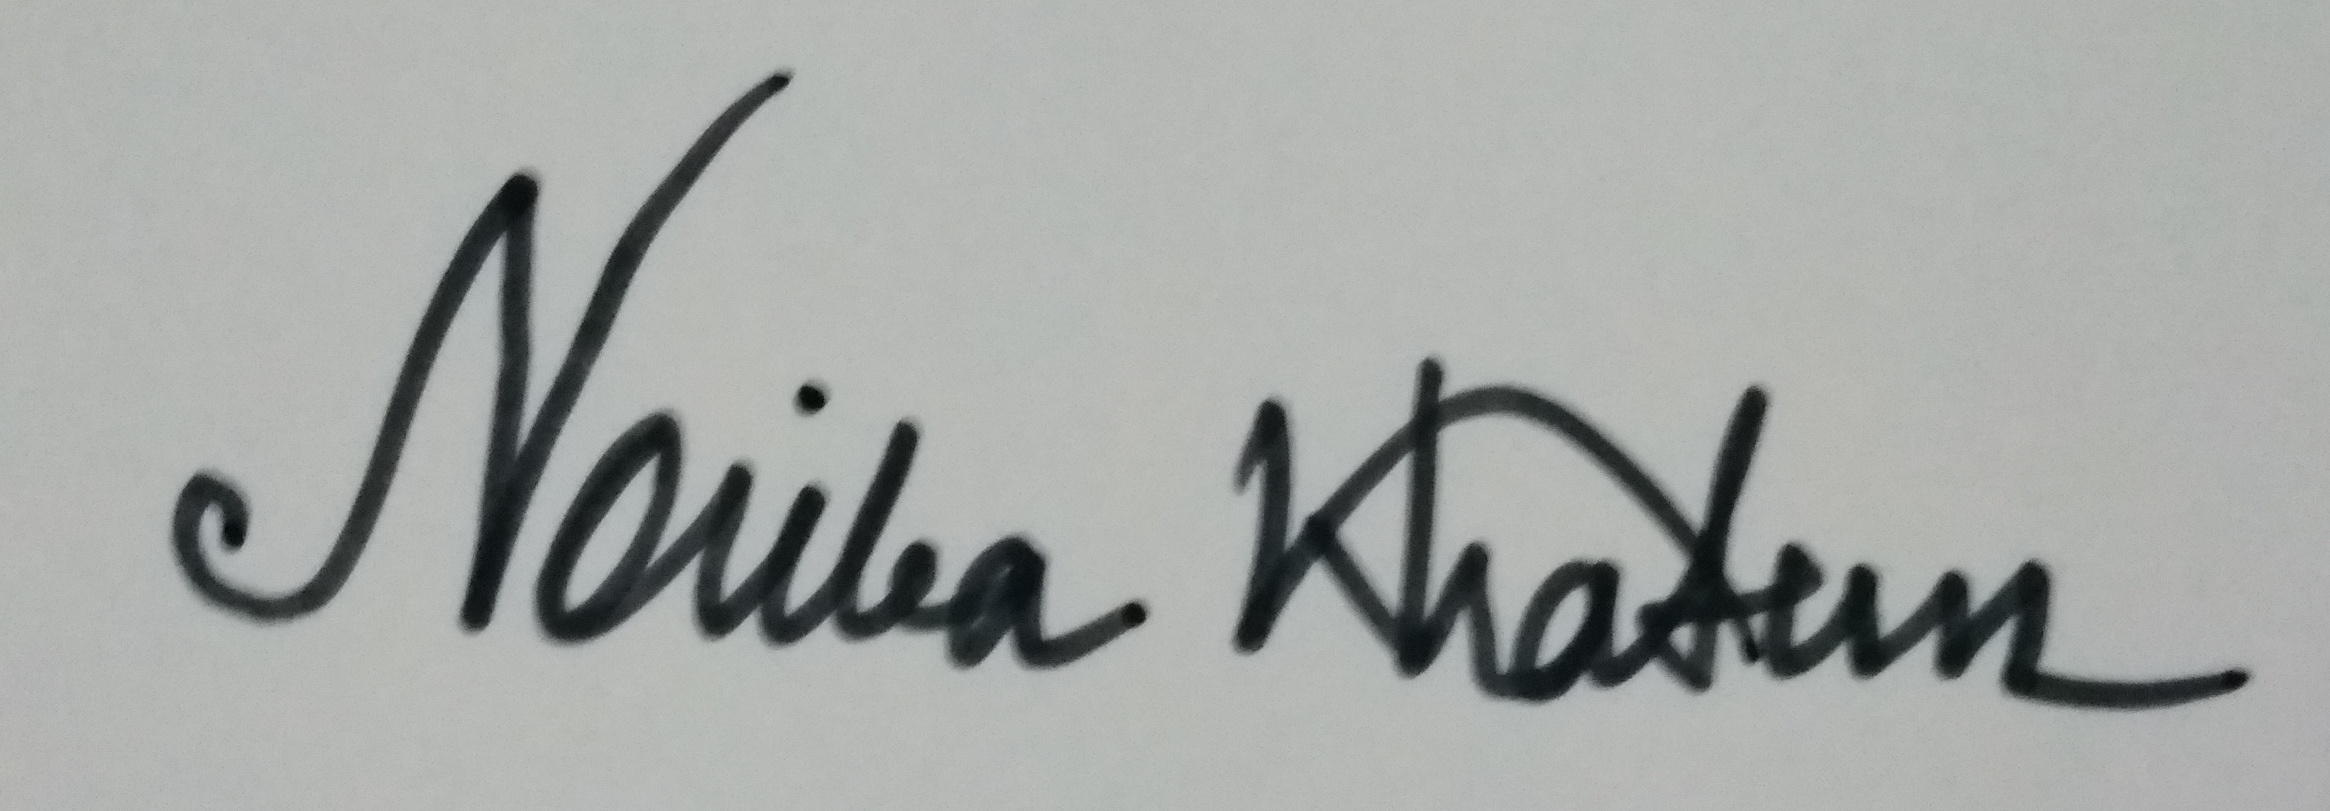 Noiiba Khatun